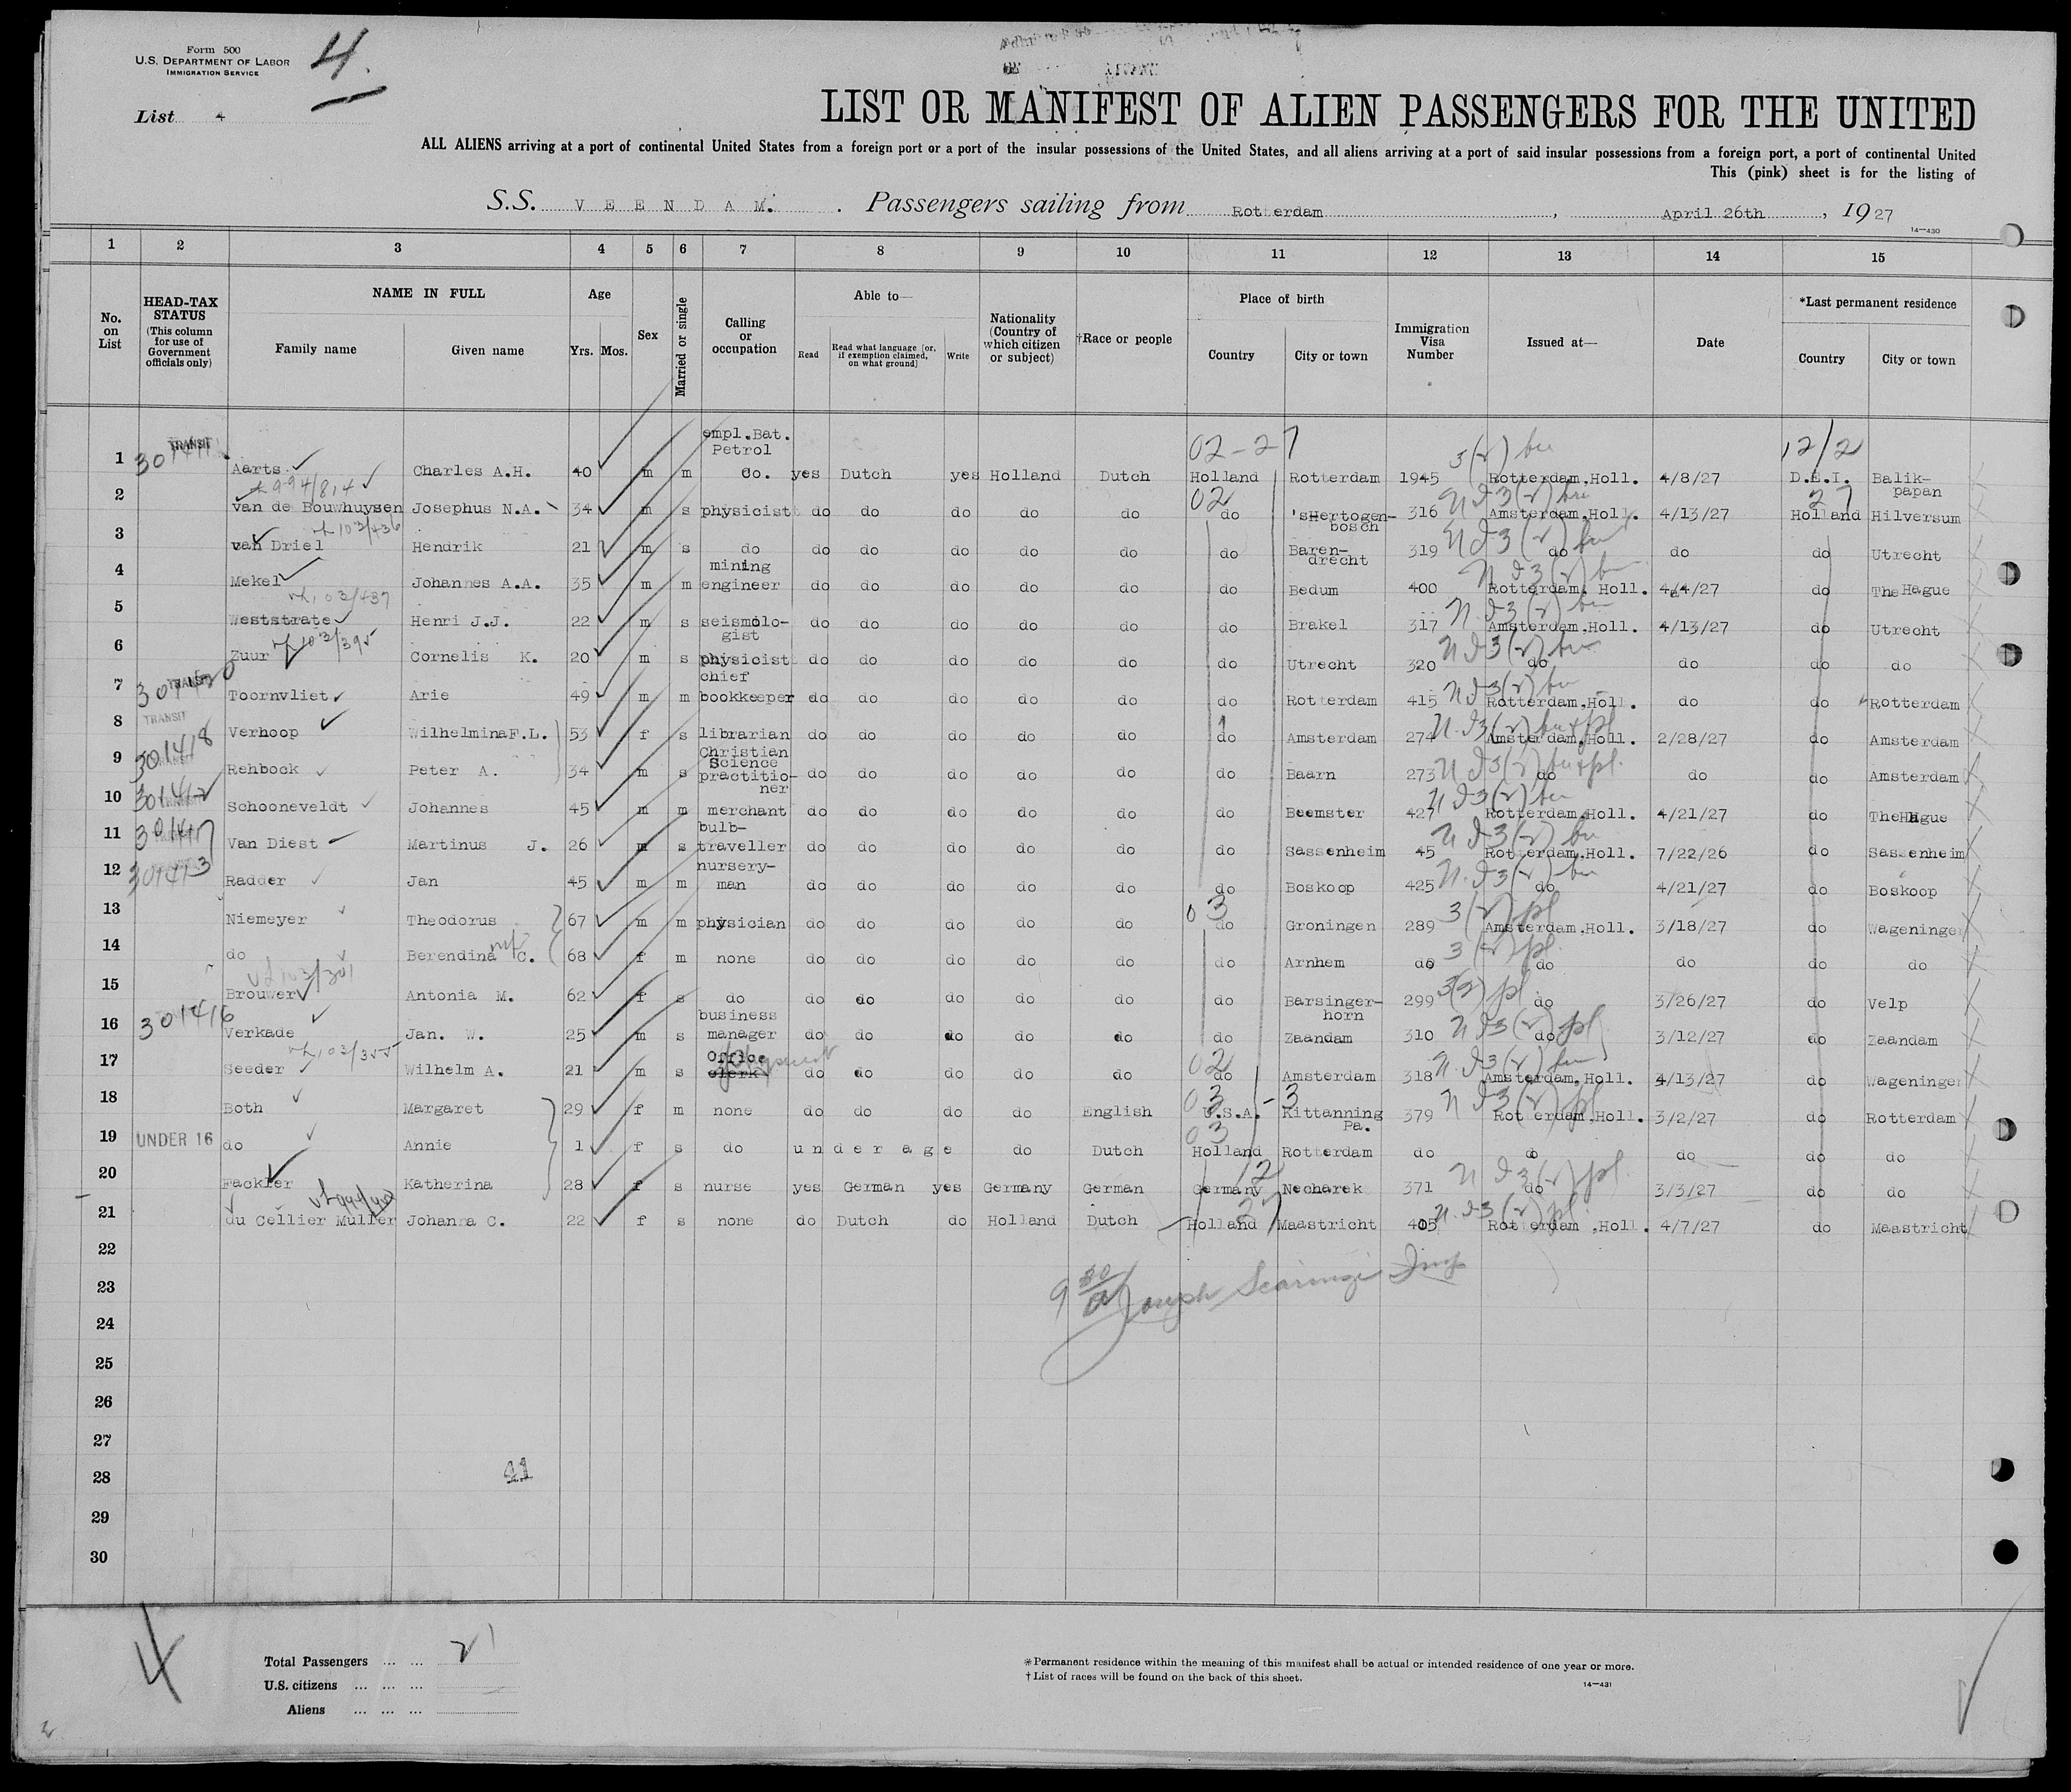 Form 500
U.S. DEPARTMENT OF LABOR
IMMIGRATION SERVICE
4.
List 4
LIST OR MANIFEST OF ALIEN PASSENGERS FOR THE UNITED
ALL ALIENS arriving at a port of continental United States from a foreign port or a port of the insular possessions of the United States, and all aliens arriving at a port of said insular possessions from a foreign port, a port of continental United
This (pink) sheet is for the listing of
S.S. VEENDAM. Passengers sailing from Rotterdam, April 26th, 1927
14-430
1 2 3 4 5 6 7 8 9 10 11 12 13 14 15
No. on List
HEAD-TAX STATUS (This column for use of Government officials only)
NAME IN FULL
Family name Given name
Age
Yrs. Mos.
Sex
Married or single
Calling or occupation
Able to—
Read Read what language (or, if exemption claimed, on what ground) Write
Nationality (Country of which citizen or subject)
†Race or people
Place of birth
Country City or town
Immigration Visa Number
Issued at—
Date
*Last permanent residence
Country City or town
1 TRANSIT Aarts Charles A.H. 40 m m empl.Bat. Petrol Co. yes Dutch yes Holland Dutch 02-27 Holland Rotterdam 1945 Rotterdam,Holl. 4/8/27 12/2 D.E.I. Balik-papan
2 994/814 van de Bouwhuysen Josephus N.A. 34 m s physicist do do do do do 02 do 'sHertogen-bosch 316 Amsterdam,Holl. 4/13/27 27 Holland Hilversum
3 103/436 van Driel Hendrik 21 m s do do do do do do do Baren-drecht 319 do do do Utrecht
4 Mekel Johannes A.A. 35 m m mining engineer do do do do do do Bedum 400 Rotterdam, Holl. 4/4/27 do The Hague
5 103/437 Weststrate Henri J.J. 22 m s seismolo-gist do do do do do do Brakel 317 Amsterdam,Holl. 4/13/27 do Utrecht
6 103/395 Zuur Cornelis K. 20 m s physicist do do do do do do Utrecht 320 do do do do
7 TRANSIT 301420 Toornvliet Arie 49 m m chief bookkeeper do do do do do do Rotterdam 415 Rotterdam,Holl. do do Rotterdam
8 TRANSIT Verhoop Wilhelmina F.L. 53 f s librarian do do do do do do Amsterdam 274 Amsterdam,Holl. 2/28/27 do Amsterdam
9 301418 Rehbock Peter A. 34 m s Christian Science practitio-ner do do do do do do Baarn 273 do do do Amsterdam
10 301412 Schooneveldt Johannes 45 m m merchant do do do do do do Beemster 427 Rotterdam,Holl. 4/21/27 do The Hague
11 301417 Van Diest Martinus J. 26 m s bulb-traveller do do do do do do Sassenheim 45 Rotterdam,Holl. 7/22/26 do Sassenheim
12 301413 Radder Jan 45 m m nursery-man do do do do do do Boskoop 425 do 4/21/27 do Boskoop
13 Niemeyer Theodorus 67 m m physician do do do do do 03 do Groningen 289 Amsterdam,Holl. 3/18/27 do Wageningen
14 do Berendina C. 68 f m none do do do do do do Arnhem do do do do do
15 103/301 Brouwer Antonia M. 62 f s do do do do do do do Barsinger-horn 299 do 3/26/27 do Velp
16 301416 Verkade Jan. W. 25 m s business manager do do do do do do Zaandam 310 do 3/12/27 do Zaandam
17 103/355 Seeder Wilhelm A. 21 m s Office clerk do do do do do 02 do Amsterdam 318 Amsterdam,Holl. 4/13/27 do Wageningen
18 Both Margaret 29 f m none do do do do English 03 U.S.A. - 3 Kittanning Pa. 379 Rotterdam,Holl. 3/2/27 do Rotterdam
19 UNDER 16 do Annie 1 f s do under age do Dutch 03 Holland Rotterdam do do do do do
20 Fackler Katherina 28 f s nurse yes German yes Germany German 12 Germany Necharek 371 do 3/3/27 do do
21 du Cellier Muller Johanna C. 22 f s none do Dutch do Holland Dutch 27 Holland Maastricht 405 Rotterdam,Holl. 4/7/27 do Maastricht
22
23 9 30/a Joseph Scaringi Insp
24
25
26
27
28 41
29
30
4
Total Passengers ... ... 21
U.S. citizens ... ... ...
Aliens ... ... ...
*Permanent residence within the meaning of this manifest shall be actual or intended residence of one year or more.
†List of races will be found on the back of this sheet.
14-431